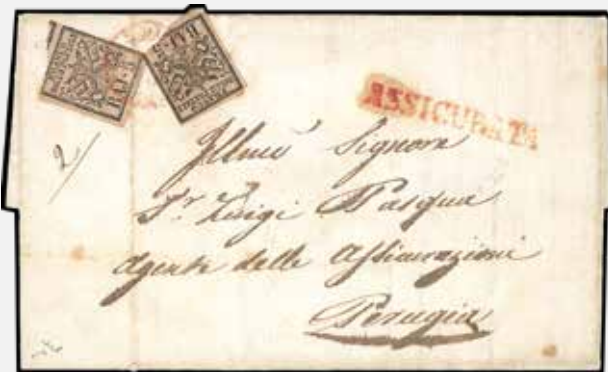 BAJ. 5
BAJ. 5
ASSICURATA
2/
Illmo Signore
Sr Luigi Pasqua
Agente delle Assicurazioni
Perugia